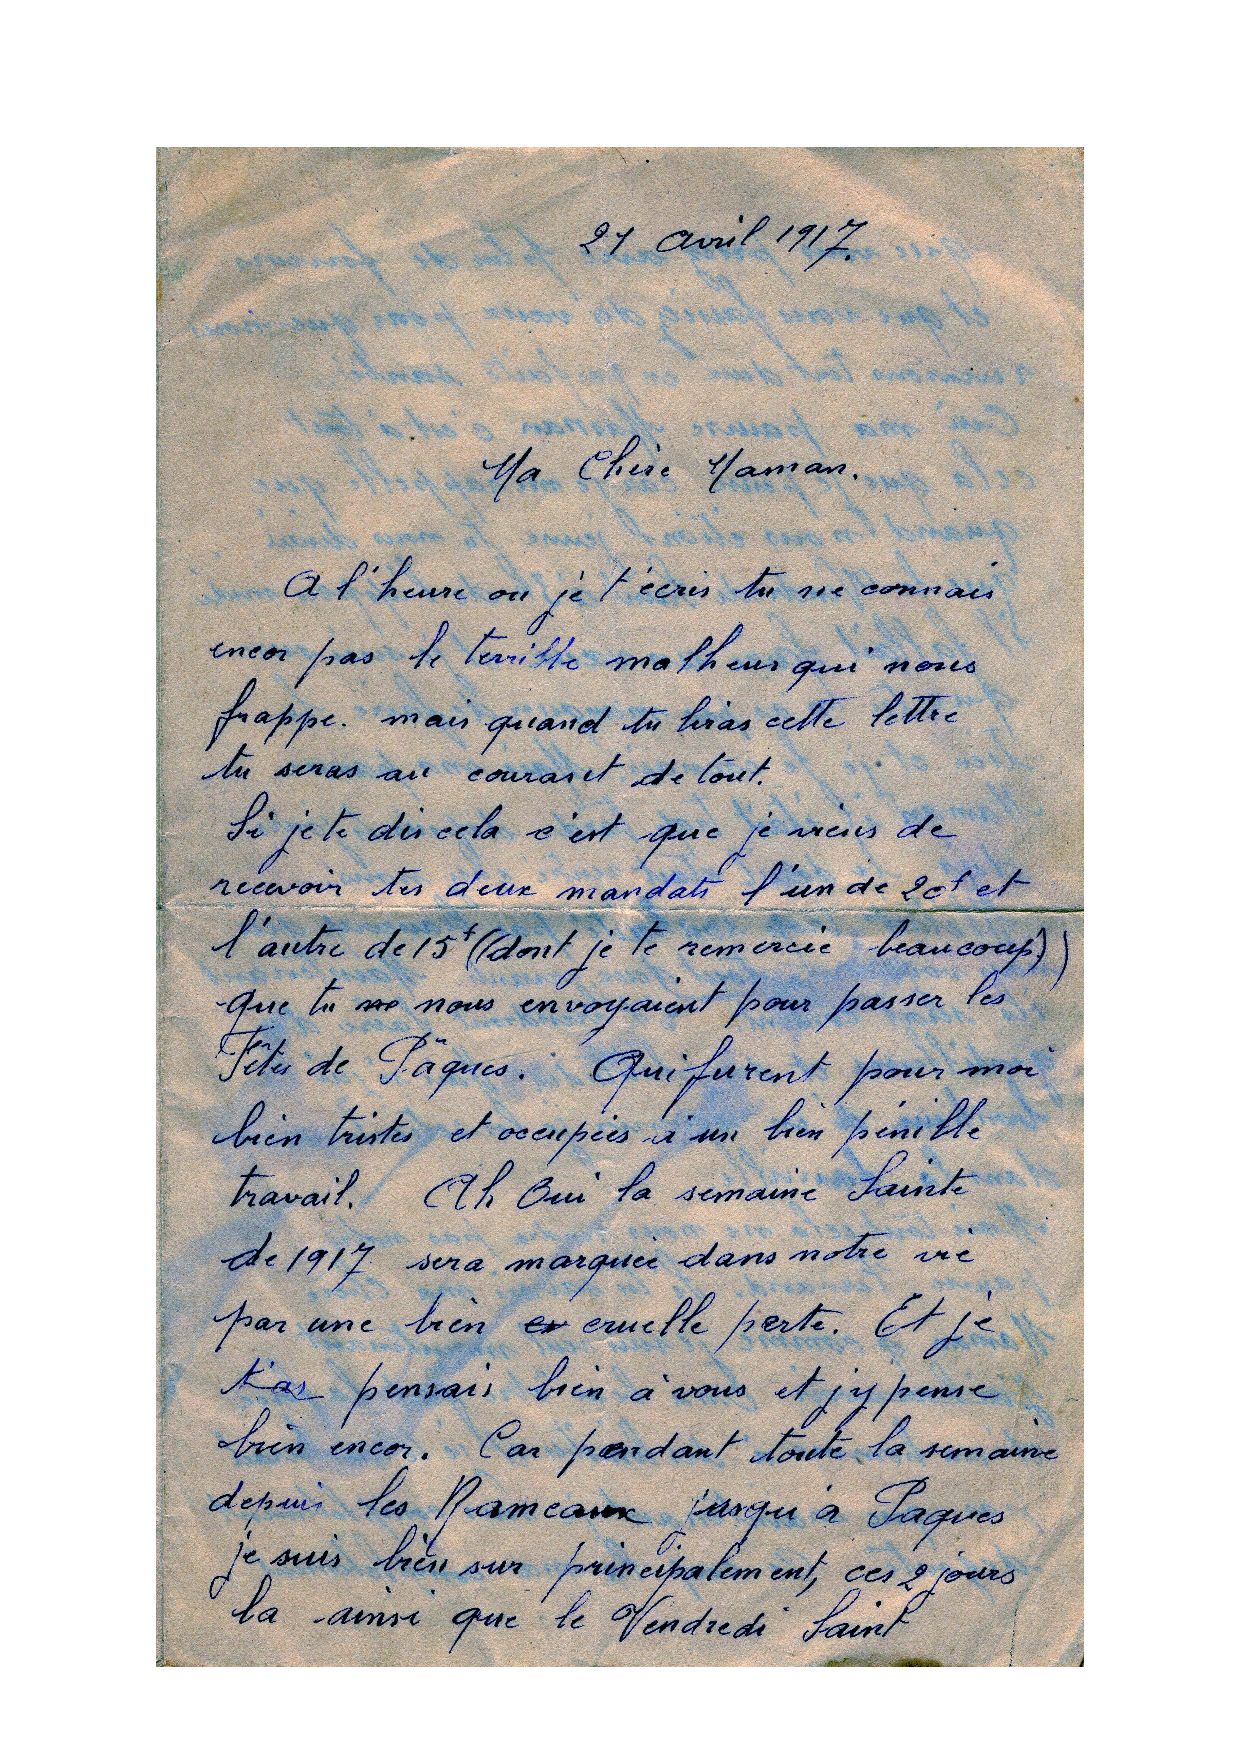 21 avril 1917.
Ma Chère Maman.
A l'heure ou je t'écris tu ne connais
encor pas le terrible malheur qui nous
frappe. mais quand tu liras cette lettre
tu seras au courant de tout.
Si je te dis cela c'est que je viens de
recevoir tes deux mandats l'un de 20f et
l'autre de 15f (dont je te remercie beaucoup)
que tu nous envoyaient pour passer les
Fêtes de Pâques. Qui furent pour moi
bien tristes et occupées à un bien pénible
travail. Ah Oui la semaine Sainte
de 1917 sera marquée dans notre vie
par une bien cruelle perte. Et je
pensais bien à vous et j'y pense
bien encor. Car pendant toute la semaine
depuis les Rameaux jusqu'à Paques
je suis bien sur principalement, ces 2 jours
la ainsi que le Vendredi Saint